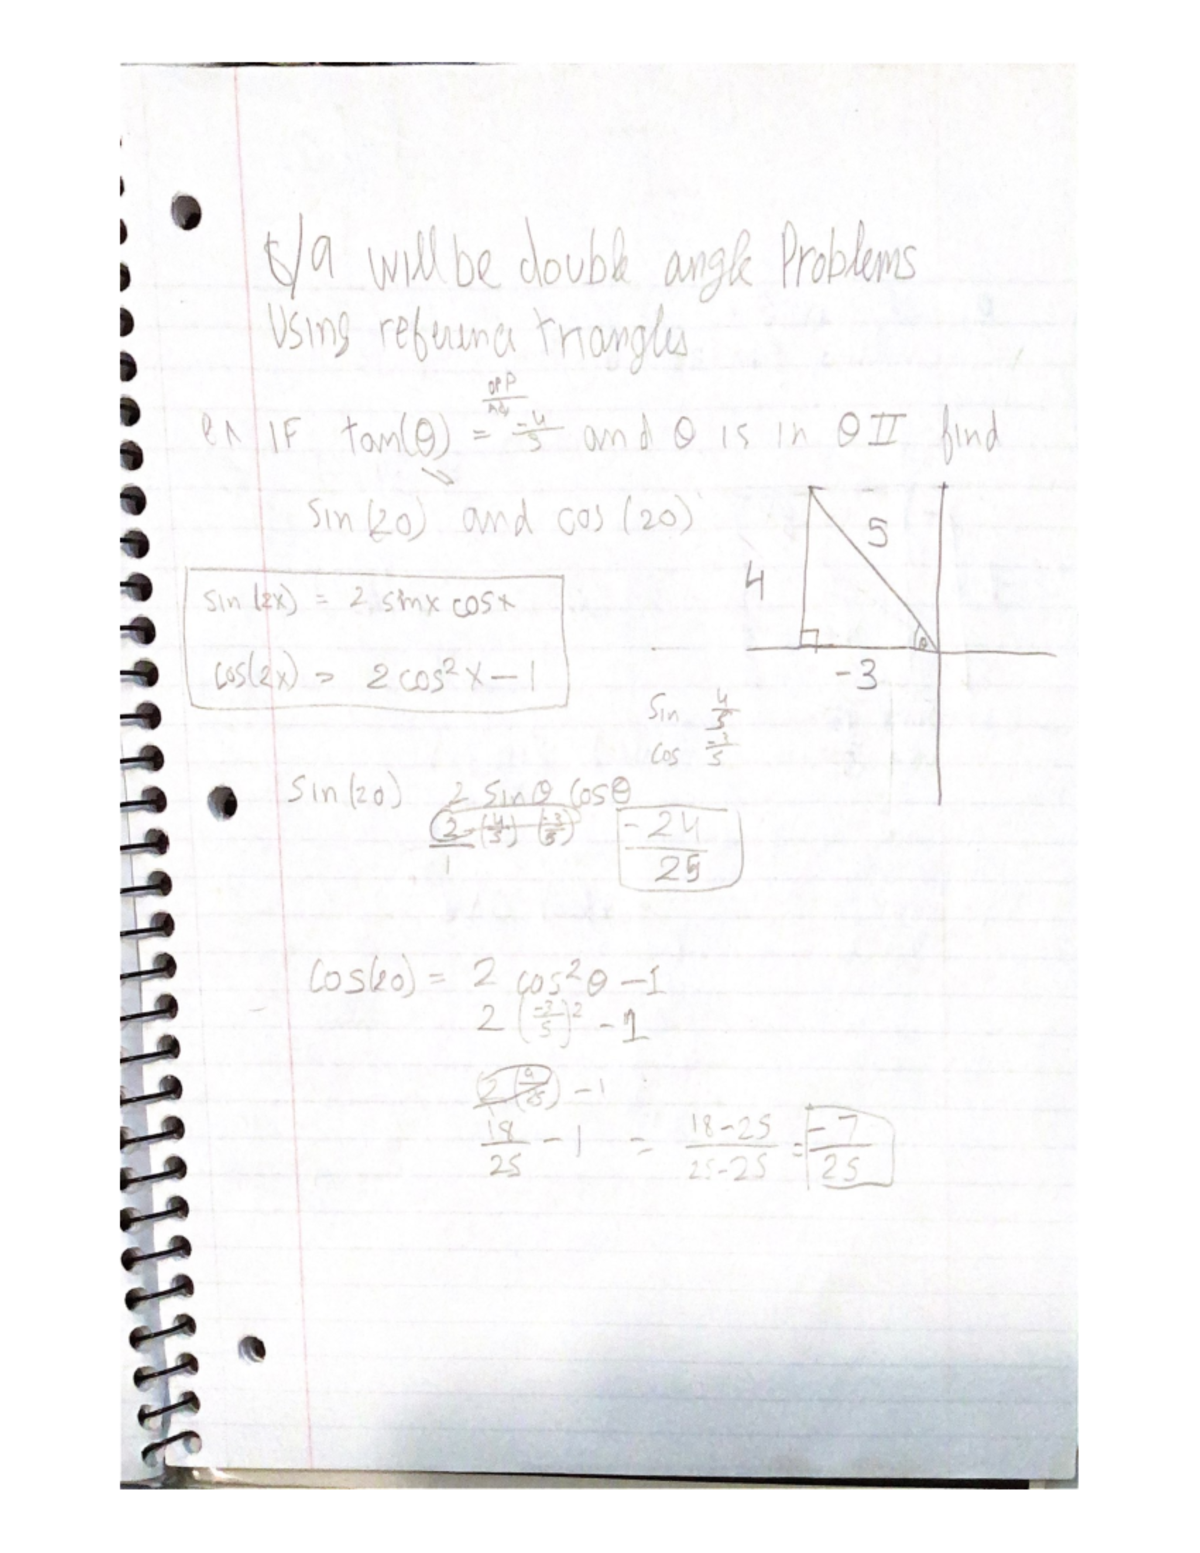 8/9 will be double angle Problems
Using reference triangles
opp
Adj
ex IF tan(θ) = -4/5 and θ is in QII find
sin(2θ) and cos(2θ)
5
4
-3
θ
sin(2x) = 2 sinx cosx
cos(2x) = 2cos²x-1
Sin 4/5
cos -3/5
Sin(2θ) 2 Sinθ Cosθ
2/1 (4/5) (-3/5) -24/25
Cos(2θ) = 2 cos²θ -1
2 (-3/5)² - 1
(2 (9/25)) - 1
18/25 - 1 = 18-25/25-25 = -7/25